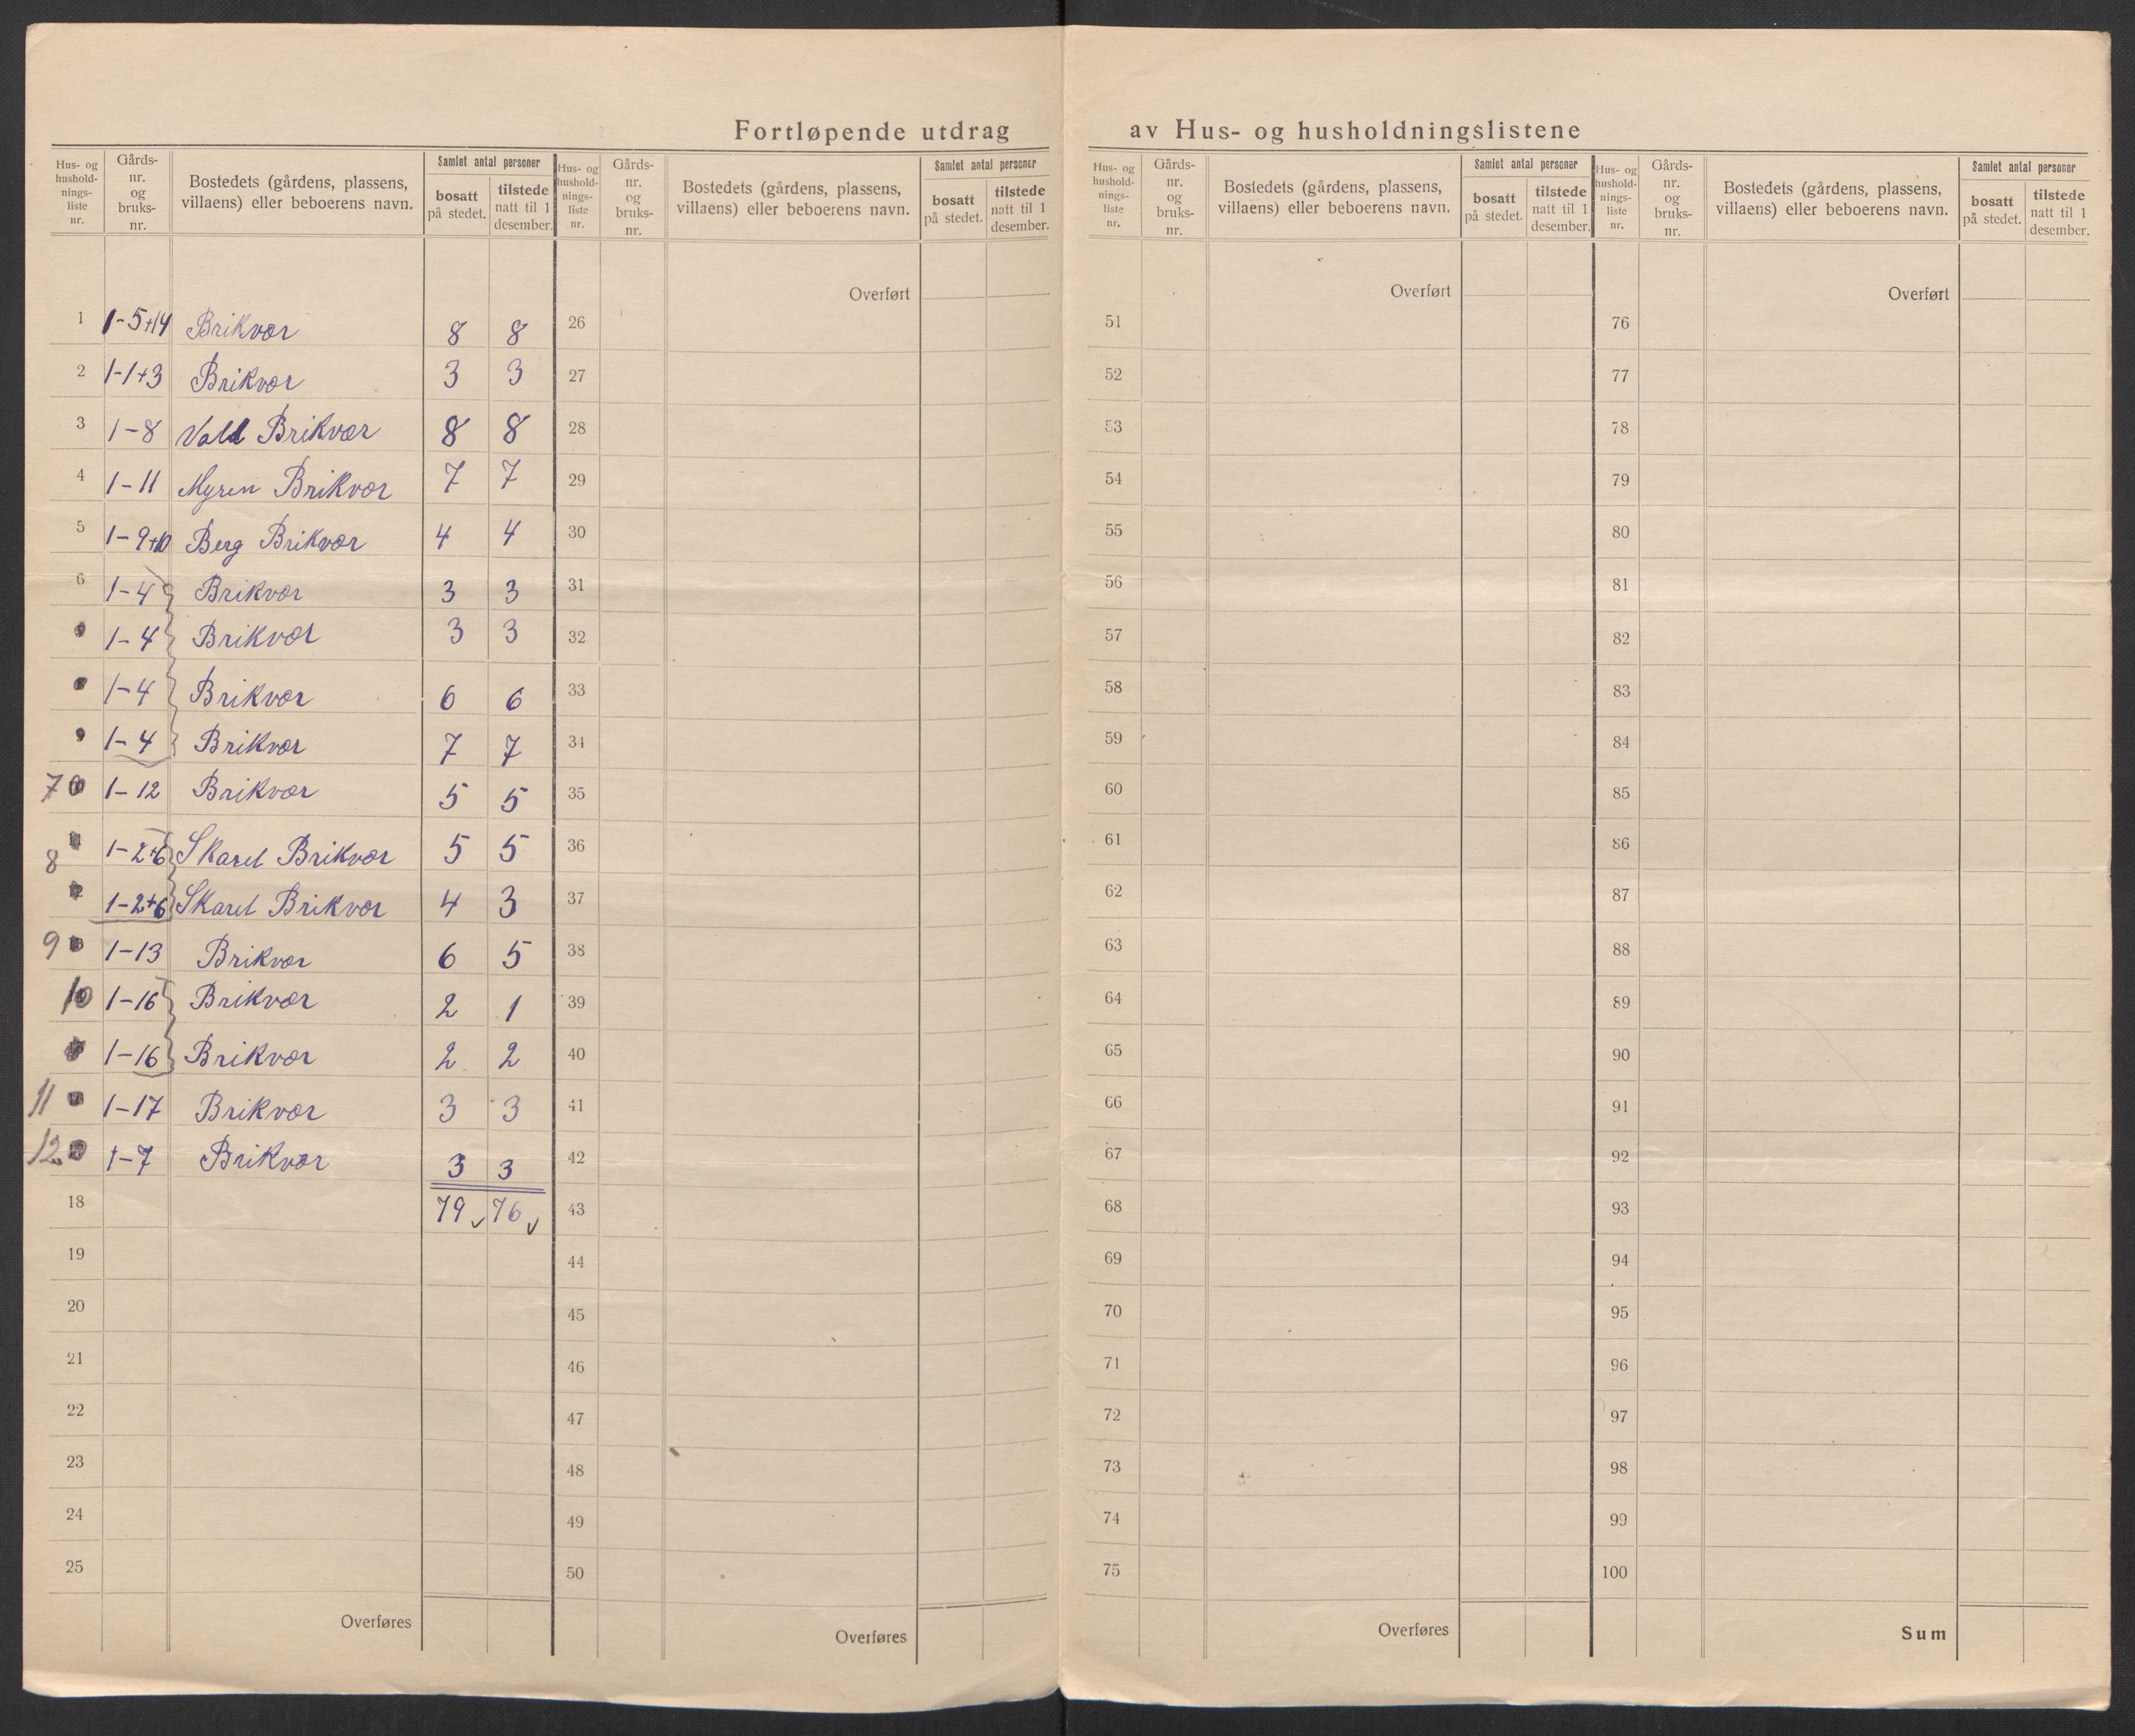 Fortløpende utdrag av Hus- og husholdningslistene
Hus- og hushold- nings- liste nr. Gårds- nr. og bruks- nr. Bostedets (gårdens, plassens, villaens) eller beboerens navn. Samlet antal personer bosatt på stedet. tilstede natt til 1 desember.
Hus- og hushold- nings- liste nr. Gårds- nr. og bruks- nr. Bostedets (gårdens, plassens, villaens) eller beboerens navn. Samlet antal personer bosatt på stedet. tilstede natt til 1 desember.
Hus- og hushold- nings- liste nr. Gårds- nr. og bruks- nr. Bostedets (gårdens, plassens, villaens) eller beboerens navn. Samlet antal personer bosatt på stedet. tilstede natt til 1 desember.
Hus- og hushold- nings- liste nr. Gårds- nr. og bruks- nr. Bostedets (gårdens, plassens, villaens) eller beboerens navn. Samlet antal personer bosatt på stedet. tilstede natt til 1 desember.
1 1-5+14 Brikvær 8 8
2 1-1+3 Brikvær 3 3
3 1-8 Vold Brikvær 8 8
4 1-11 Myren Brikvær 7 7
5 1-9+10 Berg Brikvær 4 4
6 1-4 Brikvær 3 3
1-4 Brikvær 3 3
1-4 Brikvær 6 6
1-4 Brikvær 7 7
7 1-12 Brikvær 5 5
8 1-2+6 Skaret Brikvær 5 5
1-2+6 Skaret Brikvær 4 3
9 1-13 Brikvær 6 5
10 1-16 Brikvær 2 1
1-16 Brikvær 2 2
11 1-17 Brikvær 3 3
12 1-7 Brikvær 3 3
18 79 76
19
20
21
22
23
24
25
Overføres
Overført
26
27
28
29
30
31
32
33
34
35
36
37
38
39
40
41
42
43
44
45
46
47
48
49
50
Overføres
Overført
51
52
53
54
55
56
57
58
59
60
61
62
63
64
65
66
67
68
69
70
71
72
73
74
75
Overføres
Overført
76
77
78
79
80
81
82
83
84
85
86
87
88
89
90
91
92
93
94
95
96
97
98
99
100
Sum